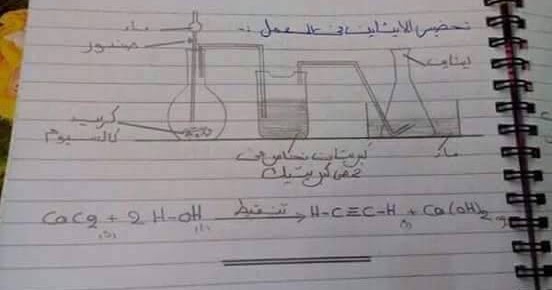 تحضير الايثاين في المعمل :-
ماء
صنبور
ايثاين
كربيد
كالسيوم
ماء
كبريتات نحاس في
حمض كبريتيك
CaC2 + 2 H-OH تنقيط H-C≡C-H + Ca(OH)2
(s) (l) (g)